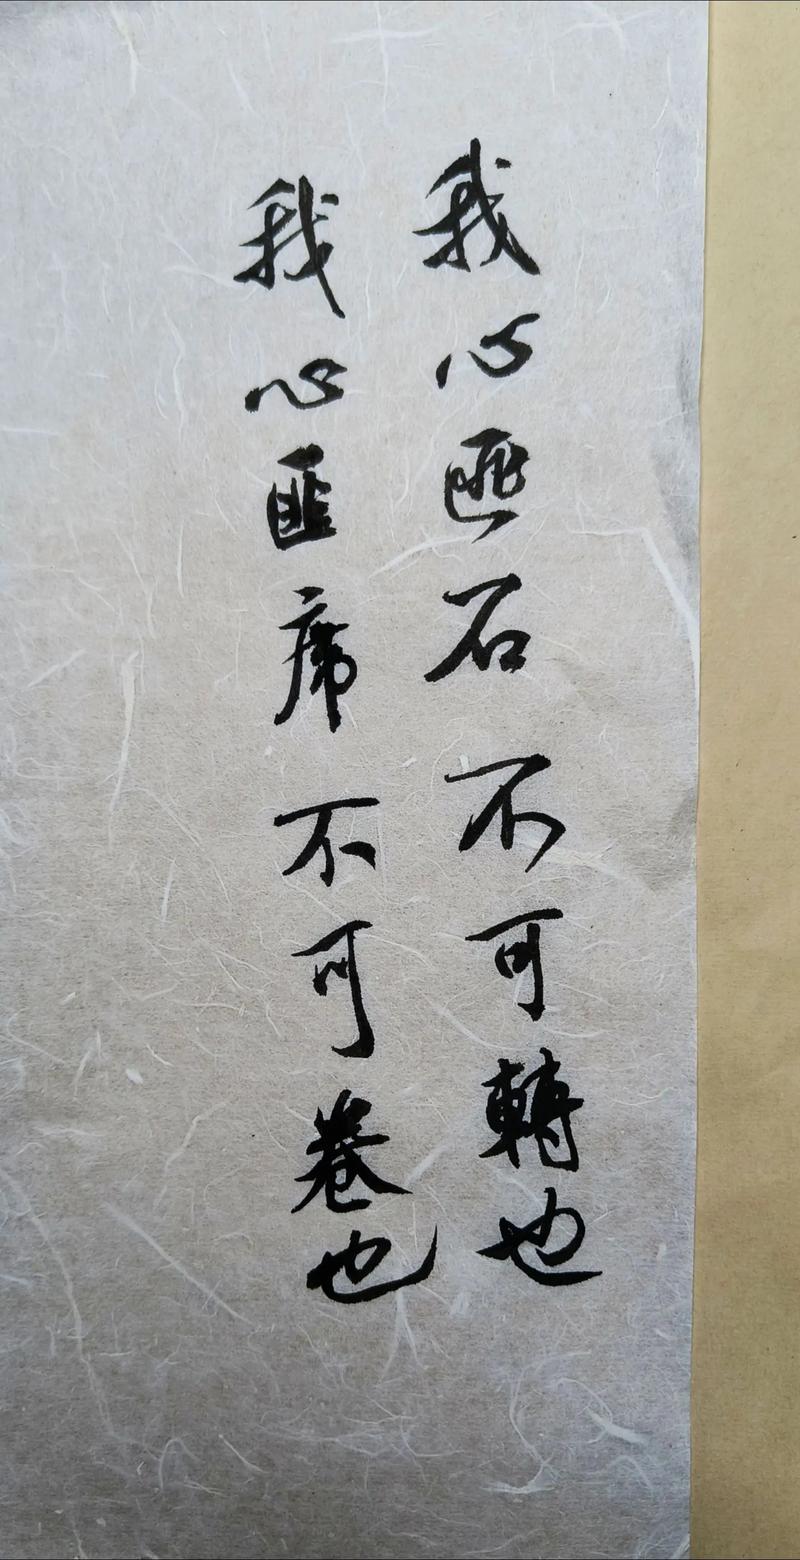 我心匪石不可轉也
我心匪席不可卷也